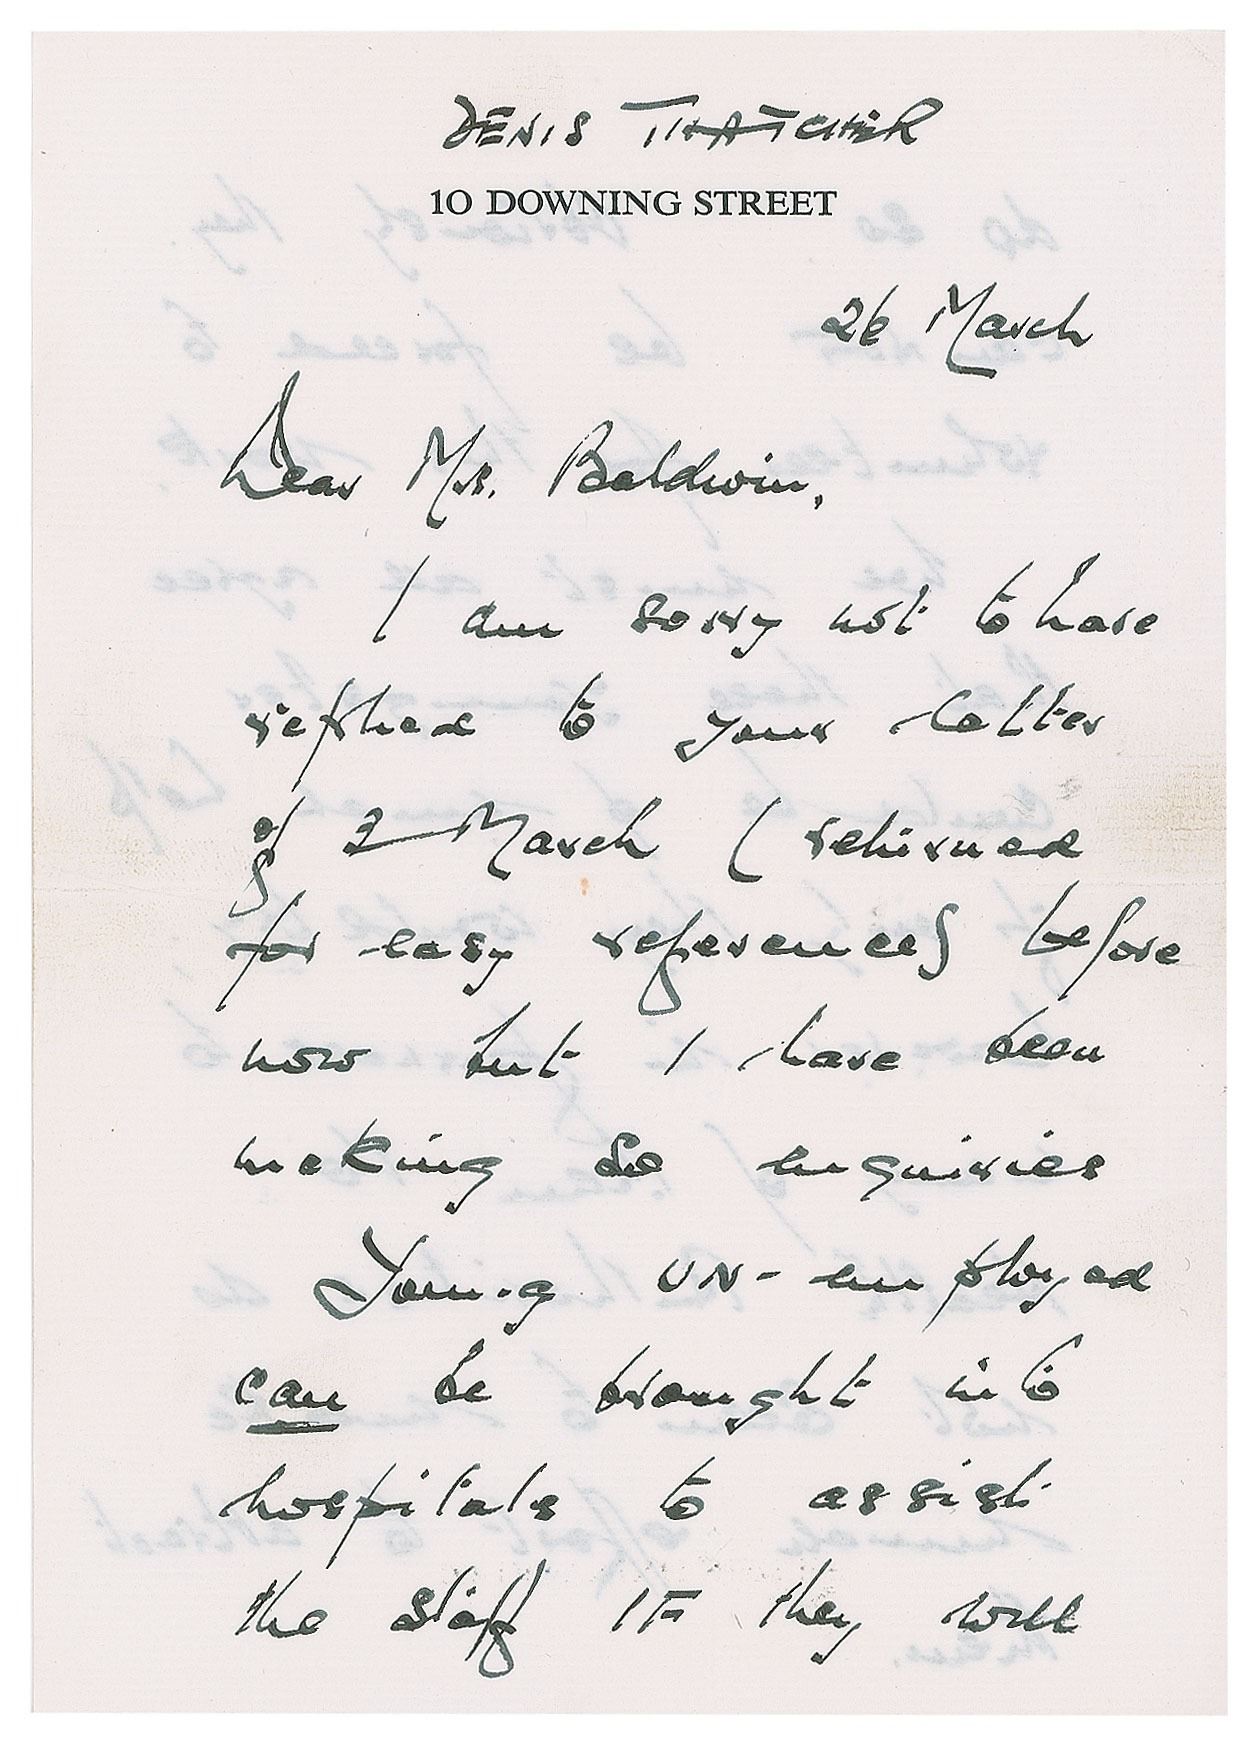 DENIS THATCHER
10 DOWNING STREET
26 March
Dear Mrs. Baldwin,
I am sorry not to have
replied to your letter
of 2 March (returned
for easy reference) before
now but I have been
making enquiries
Young UN-employed
can be brought into
hospitals to assist
the staff IF they will